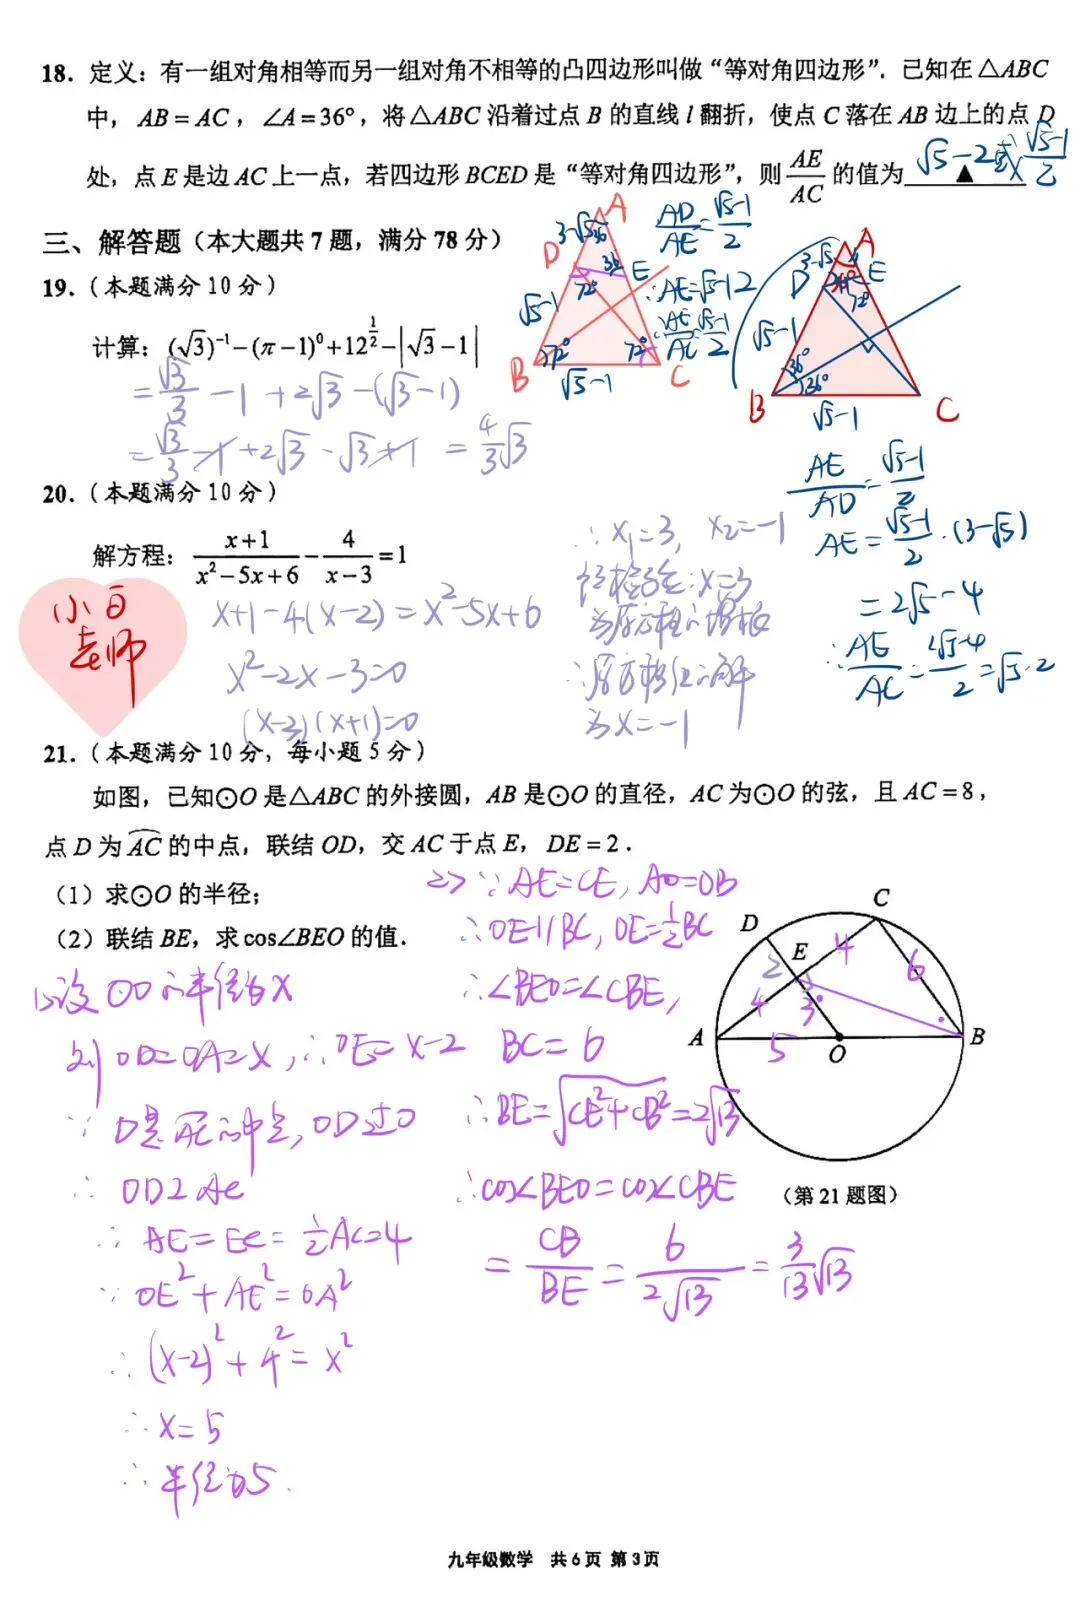 18. 定义：有一组对角相等而另一组对角不相等的凸四边形叫做“等对角四边形”. 已知在△ABC
中，AB=AC，∠A=36°，将△ABC 沿着过点 B 的直线 l 翻折，使点 C 落在 AB 边上的点 D
处，点 E 是边 AC 上一点，若四边形 BCED 是“等对角四边形”，则 AE/AC 的值为 ▲
√5-2或 (√5-1)/2
三、解答题（本大题共 7 题，满分 78 分）
A
D
E
B
C
3-√5
36
36
72°
72°
72°
√5-1
√5-1
AD/AE=(√5-1)/2
∴AE=√5-12
∴AE/AC=(√5-1)/2
A
D
E
B
C
3-√5
36°
72°
36°
36°
√5-1
√5-1
19.（本题满分 10 分）
计算：(√3)⁻¹-(π-1)⁰+12^(1/2)-|√3-1|
=√3/3-1+2√3-(√3-1)
=√3/3-1+2√3-√3+1 =4/3√3
AE/AD=(√5-1)/2
AE=(√5-1)/2·(3-√5)
=2√5-4
∴AE/AC=(2√5-4)/2=√5-2
20.（本题满分 10 分）
解方程：(x+1)/(x²-5x+6)-4/(x-3)=1
x+1-4(x-2)=x²-5x+6
x²-2x-3=0
(x-3)(x+1)=0
∴x₁=3, x₂=-1
经检验:x=3
为原方程的增根
∴原方程的解
为x=-1
小白
老师
21.（本题满分 10 分，每小题 5 分）
如图，已知⊙O 是△ABC 的外接圆，AB 是⊙O 的直径，AC 为⊙O 的弦，且 AC=8，
点 D 为 A͡C 的中点，联结 OD，交 AC 于点 E，DE=2.
（1）求⊙O 的半径；
（2）联结 BE，求 cos∠BEO 的值.
1>设⊙O的半径为x
则OD=OA=x,∴OE=x-2
∵D是AC的中点,OD过O
∴OD⊥AC
∴AE=EC=1/2AC=4
∵OE²+AE²=OA²
∴(x-2)²+4²=x²
∴x=5
∴半径为5.
2>∵AE=CE,AO=OB
∴OE//BC,OE=1/2BC
∴∠BEO=∠CBE,
BC=6
∴BE=√(CE²+CB²)=2√13
∴cos∠BEO=cos∠CBE
=CB/BE=6/(2√13)=3/13√13
C
D
E
A
O
B
2
4
4
6
3
5
（第 21 题图）
九年级数学 共 6 页 第 3 页